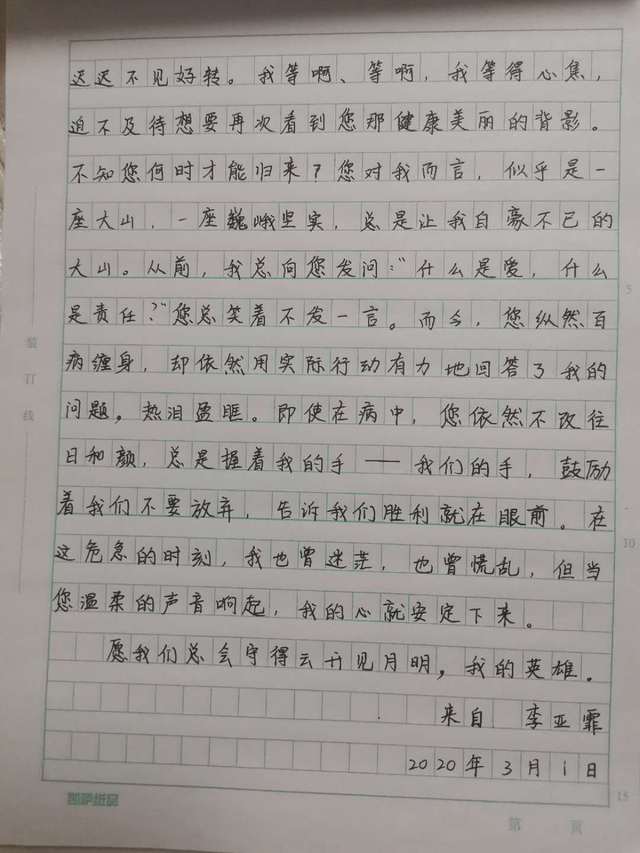 迟迟不见好转。我等啊、等啊，我等得心焦，
迫不及待想要再次看到您那健康美丽的背影。
不知您何时才能归来？您对我而言，似乎是一
座大山，一座巍峨坚实，总是让我自豪不已的
大山。从前，我总向您发问：“什么是爱，什么
是责任？”您总笑着不发一言。而今，您纵然百
病缠身，却依然用实际行动有力地回答了我的
问题，热泪盈眶。即使在病中，您依然不改往
日和颜，总是握着我的手——我们的手，鼓励
着我们不要放弃，告诉我们胜利就在眼前。在
这危急的时刻，我也曾迷茫，也曾慌乱，但当
您温柔的声音响起，我的心就安定下来。
愿我们总会守得云开见月明，我的英雄。
来自 李亚霏
2020年3月1日
装订线
5
10
15
凯萨纸品
第 页